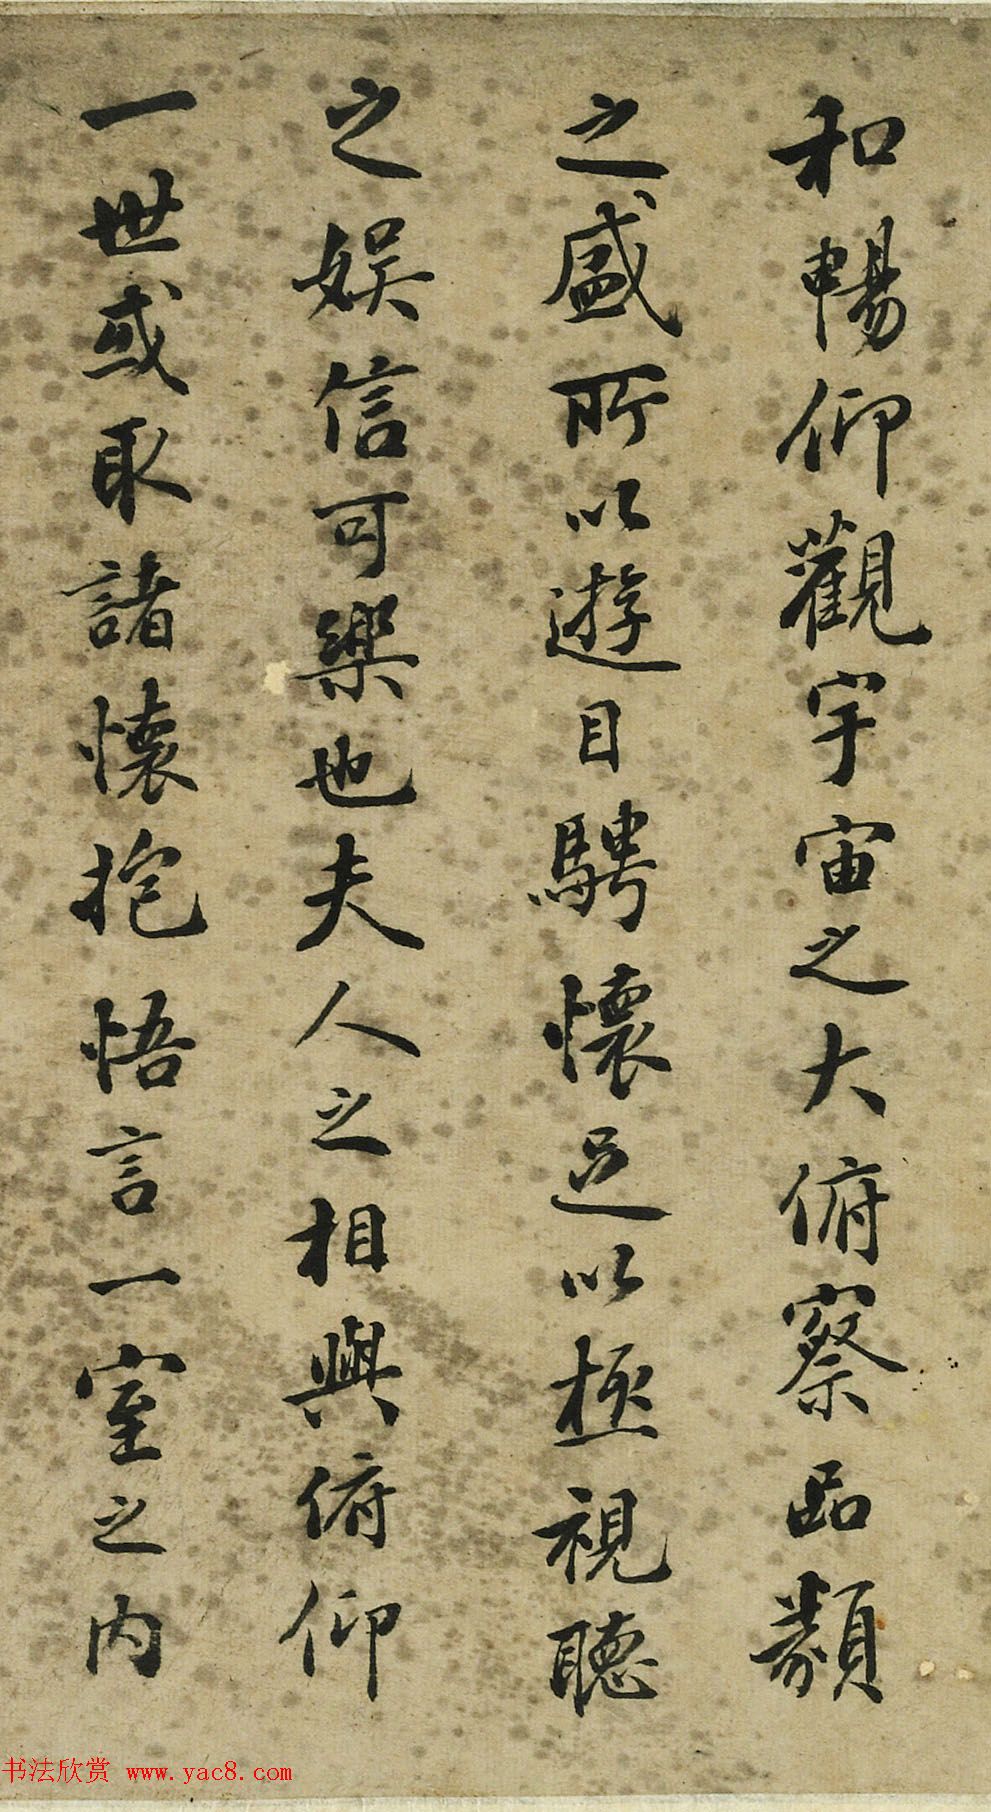 和暢仰觀宇宙之大俯察品類
之盛所以遊目騁懷足以極視聽
之娱信可樂也夫人之相與俯仰
一世或取諸懷抱悟言一室之内
书法欣赏 www.yac8.com